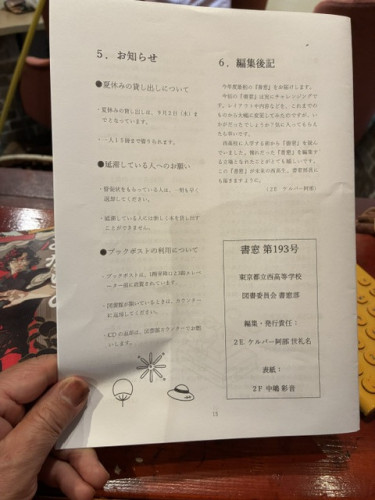 5．お知らせ
●夏休みの貸し出しについて
・夏休みの貸し出しは、9月2日（水）ま
でとなっています。
・一人15冊まで借りられます。
●延滞している人へのお願い
・督促状をもらっている人は、一刻も早く
返却してください。
・延滞している人には新しく本を貸し出す
ことができません。
●ブックポストの利用について
・ブックポストは、
ター前に設置されています。
・図書館が開いているときは、カウンター
に返却してください。
・CDの返却は、図書館カウンターでお願
いします。
6．編集後記
今年度最初の『書窓』をお届けします。
今回の『書窓』は実にチャレンジングで
す。レイアウトや内容などを、これまでの
ものから大幅に変更してみたのですが、い
かがだったでしょうか？気に入ってもらえ
たら幸いです。
西高校に入学する前から『書窓』を読ん
でいました。憧れだった『書窓』を編集す
る立場となれたことがとても嬉しいです。
この『書窓』が未来の西高生、書窓部員に
も届きますように。
（2E ケルバー阿部）
書窓 第193号
東京都立西高等学校
図書委員会 書窓部
編集・発行責任：
2E ケルバー阿部 伎礼名
表紙：
2F 中嶋 彩音
15